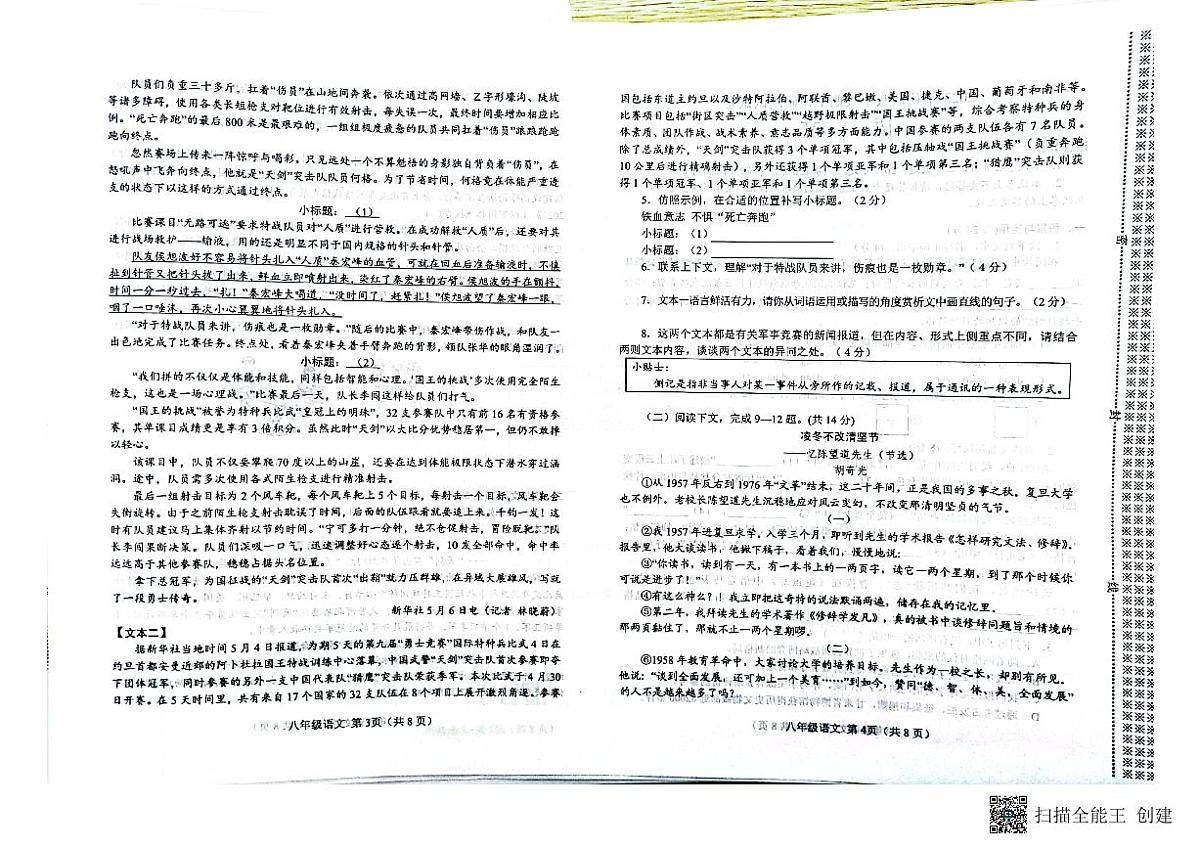 队员们负重三十多斤，扛着“伤员”在山地间奔袭。依次通过高网墙、乙字形壕沟、陡坡
等诸多障碍，使用各类长短枪支对靶位进行有效射击，每失误一次，最终时间要增加相应比
例。“死亡奔跑”的最后 800 米是最艰难的，一组组极度疲惫的队员共同扛着“伤员”踉踉跄跄
跑向终点。
忽然赛场上传来一阵惊呼与喝彩。只见远处一个不算魁梧的身影独自背负着“伤员”，在
怒吼声中飞奔向终点，他就是“天剑”突击队队员何格。为了节省时间，何格竟在体能严重透
支的状态下以这样的方式通过终点。
小标题：（1）
比赛课目“无路可逃”要求特战队员对“人质”进行营救。在成功解救“人质”后，还要对其
进行战场救护——输液，用的还是明显不同于国内规格的针头和针管。
队友侯旭波好不容易将针头扎入“人质”秦宏峰的血管，可就在回血后准备输液时，不慎
拉到针管又把针头拔了出来，鲜血立即喷射出来，染红了秦宏峰的右臂。侯旭波的手在颤抖，
时间一分一秒过去，“扎！”秦宏峰大喝道，“没时间了，赶紧扎！”侯旭波望了秦宏峰一眼，
咽了一口唾沫，再次小心翼翼地将针头扎入。
“对于特战队员来讲，伤痕也是一枚勋章。”随后的比赛中，秦宏峰带伤作战，和队友一
出色地完成了比赛任务。终点处，看着秦宏峰夹着手臂奔跑的背影，领队张华的眼角湿润了。
小标题：（2）
“我们拼的不仅仅是体能和技能，同样包括智能和心理。‘国王的挑战’多次使用完全陌生
枪支，这也是一场心理战。”比赛最后一天，队长李闯这样给队员们打气。
“国王的挑战”被誉为特种兵比武“皇冠上的明珠”，32 支参赛队中只有前 16 名有资格参
赛，其单课目成绩更是享有 3 倍积分。虽然此时“天剑”以大比分优势稳居第一，但仍不敢掉
以轻心。
该课目中，队员不仅要攀爬 70 度以上的山崖，还要在达到体能极限状态下潜水穿过涵
洞。途中，队员需多次使用各式陌生枪支进行精准射击。
最后一组射击目标为 2 个风车靶，每个风车靶上 5 个目标，每射击一个目标，风车靶会
失衡旋转。由于之前陌生枪支射击耽误了时间，后面的队伍眼看就要追上来。千钧一发！这
时有队员建议马上集体齐射以节约时间。“宁可多打一分钟，绝不仓促射击，冒险脱靶。”队
长李闯果断决策。队员们深吸一口气，迅速调整好心态逐个射击，10 发全部命中，命中率
远远高于其他参赛队，稳稳占据头名位置。
拿下总冠军，为国征战的“天剑”突击队首次“出鞘”就力压群雄，在异域大展雄风，写就
了一段勇士传奇。
新华社 5 月 6 日电（记者 林晓蔚）
【文本二】
据新华社当地时间 5 月 4 日报道，为期 5 天的第九届“勇士竞赛”国际特种兵比武 4 日在
约旦首都安曼近郊的阿卜杜拉国王特战训练中心落幕，中国武警“天剑”突击队首次参赛即夺
下团体冠军，同时参赛的另外一支中国代表队“猎鹰”突击队荣获季军。本次比武于 4 月 30
日开赛。在 5 天时间里，共有来自 17 个国家的 32 支队伍在 8 个项目上展开激烈角逐。参赛
八年级语文 第 3页（共 8 页）
国包括东道主约旦以及沙特阿拉伯、阿联酋、黎巴嫩、美国、捷克、中国、葡萄牙和南非等。
比赛项目包括“街区突击”“人质营救”“越野极限射击”“国王挑战赛”等，综合考察特种兵的身
体素质、团队作战、战术素养、意志品质等多方面能力。中国参赛的两支队伍各有 7 名队员。
除了总成绩外，“天剑”突击队获得 3 个单项冠军，其中包括压轴战“国王挑战赛”（负重奔跑
10 公里后进行精确射击），另外还获得 1 个单项亚军和 1 个单项第三名；“猎鹰”突击队则获
得 1 个单项冠军、1 个单项亚军和 1 个单项第三名。
5．仿照示例，在合适的位置补写小标题。（2 分）
铁血意志 不惧“死亡奔跑”
小标题：（1）
小标题：（2）
6．联系上下文，理解“对于特战队员来讲，伤痕也是一枚勋章。”（4 分）
7．文本一语言鲜活有力，请你从词语运用或描写的角度赏析文中画直线的句子。（2 分）
8．这两个文本都是有关军事竞赛的新闻报道，但在内容、形式上侧重点不同，请结合
两则文本内容，谈谈两个文本的异同之处。（4 分）
小贴士：
侧记是指非当事人对某一事件从旁所作的记载、报道，属于通讯的一种表现形式。
（二）阅读下文，完成 9—12 题。(共 14 分)
凌冬不改清坚节
——忆陈望道先生（节选）
胡奇光
①从 1957 年反右到 1976 年“文革”结束，这二十年间，正是我国的多事之秋。复旦大学
也不例外。老校长陈望道先生沉稳地应对风云变幻，不改变那清明坚贞的气节。
（一）
②我 1957 年进复旦求学，入学三个月，即听到先生的学术报告《怎样研究文法、修辞》。
报告里，他大谈读书，他撇下稿子，看着我们，慢慢地说：
③“你读书，读到有一天，有一本书上的一两页字，读它一两个星期，到了那个时候你
可说是进步了！”
④有这么神么？！我立即把这奇特的说法默诵两遍，储存在我的记忆里．
⑤第二年，我拜读先生的学术著作《修辞学发凡》，真的被书中谈修辞同题旨和情境的
那两页黏住了，那就不止一两个星期啰。
（二）
⑥1958 年教育革命中，大家讨论大学的培养目标。先生作为一校之长，却别有所见。
他说：“谈到全面发展，还可加上一个美育……”到如今，赞同“德、智、体、美，全面发展”
的人不是越来越多了吗？
八年级语文 第 4页（共 8 页）
密
封
线
扫描全能王 创建